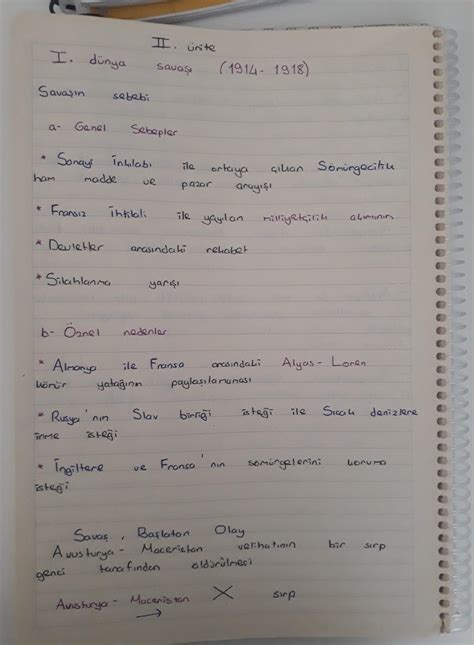 II. ünite
I. dünya savaşı (1914-1918)
Savaşın sebebi
a- Genel Sebepler
* Sanayi İnkılabı ile ortaya çıkan Sömürgecilik
ham madde ve pazar arayışı
* Fransız İhtilali ile yayılan milliyetçilik akımının
* Devletler arasındaki rekabet
* Silahlanma yarışı
b- Öznel nedenler
* Almanya ile Fransa arasındaki Alyas-Loren
kömür yatağının paylaşılamaması
* Rusya'nın Slav birliği isteği ile Sıcak denizlere
inme isteği
* İngiltere ve Fransa'nın sömürgelerini koruma
isteği
Savaş, Başlatan Olay
Avusturya-Macaristan velihatının bir sırp
genci tarafından öldürülmesi
Avusturya-Macaristan X sırp
→